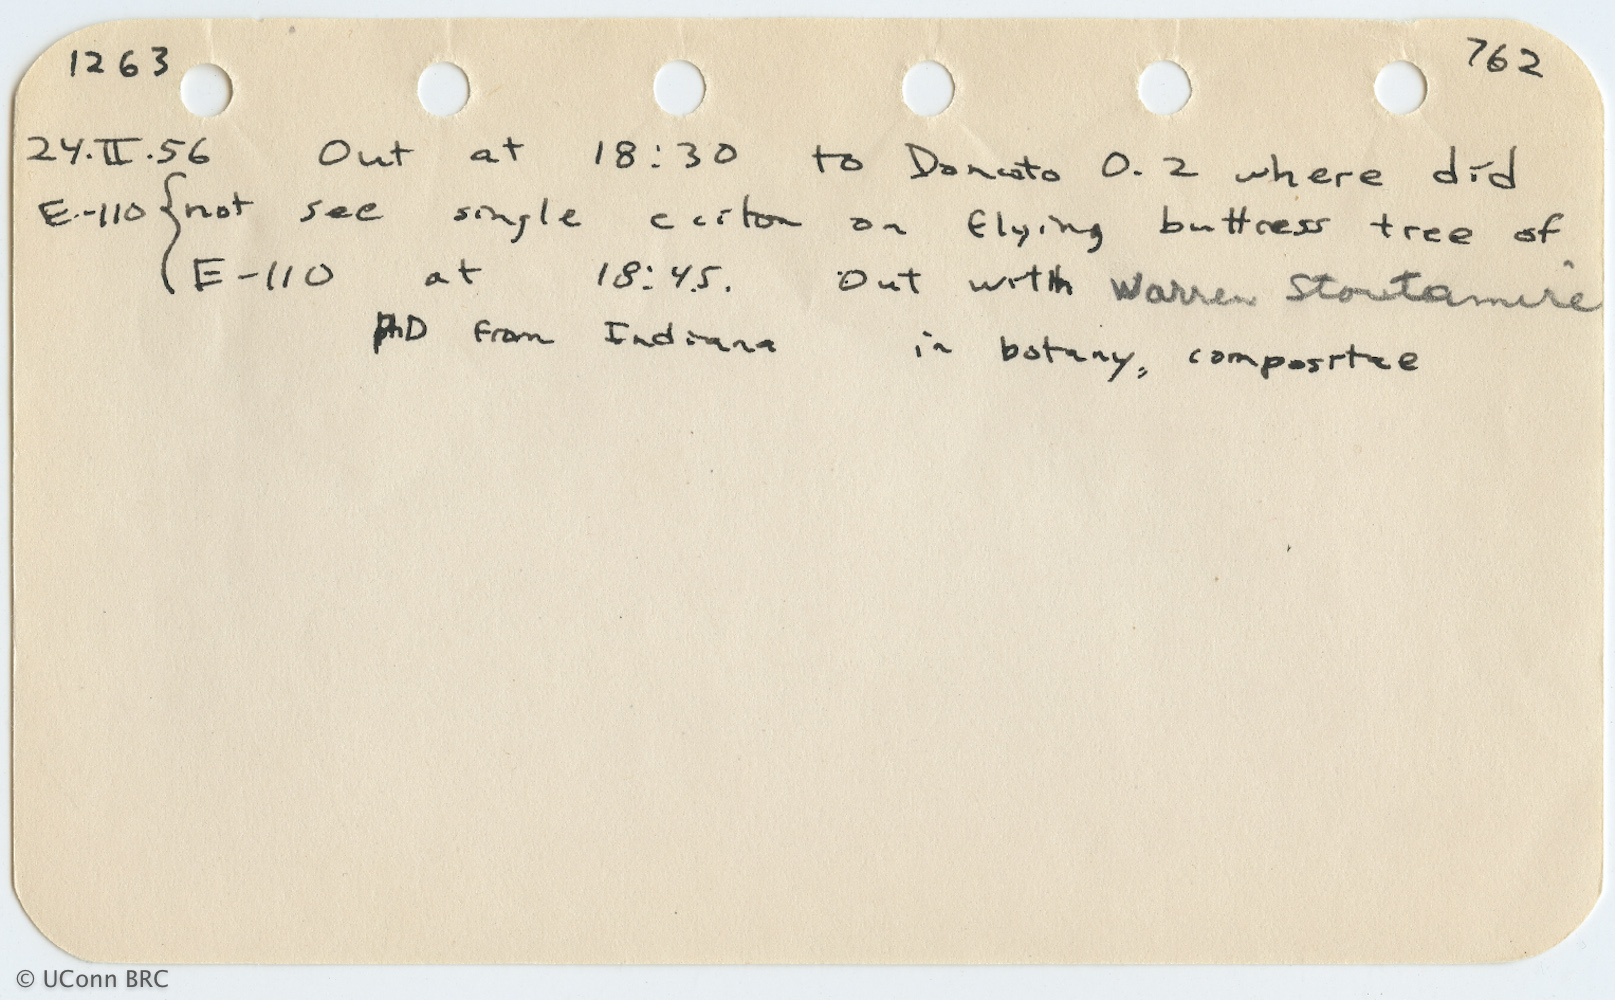 1263 762
24.II.56 Out at 18:30 to Donato 0.2 where did
E-110 { not see single eciton on flying buttress tree of
E-110 at 18:45. Out with Warren Stoutamire
PhD from Indiana in botany, compositae
© UConn BRC